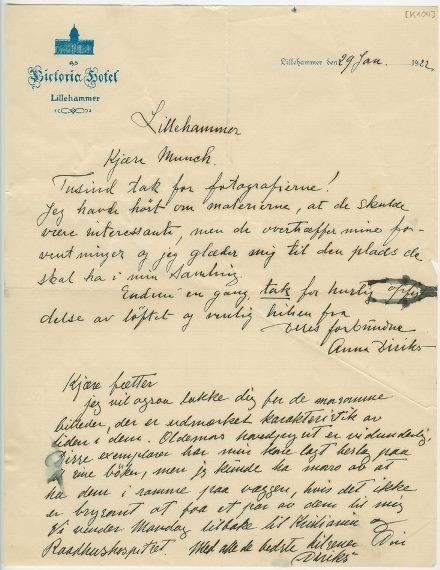 [K1041]
Victoria Hotel
Lillehammer
Lillehammer den 29 Jan. 1922
Lillehammer
Kjære Munch.
Tusind tak for fotografierne!
Jeg havde hört om materierne, at de skulde
være interessante, men de overtræffer mine for-
ventninger og jeg glæder mig til den plads de
skal ha i min samling.
Endnu en gang, tak for hurtig opfyl-
delse av löftet og venlig hilsen fra
Deres forbundne
Anna Diriks
Kjære fætter
jeg vil ogsaa takke dig for de morsomme
billeder, der er udmærket karakteristik av
tiden i dem. Oldemors hovedpynt er vidunderlig.
Disse exemplarer har min kone lagt beslag paa
i sine böker, men jeg kunde ha moro av at
ha dem i ramme paa væggen, hvis det ikke
er brysomt at faa et par av dem til mig
Vi vender Mandag tilbake til Kristiania og
Raadhushospitset. Med alle de bedste hilsener Din
Diriks